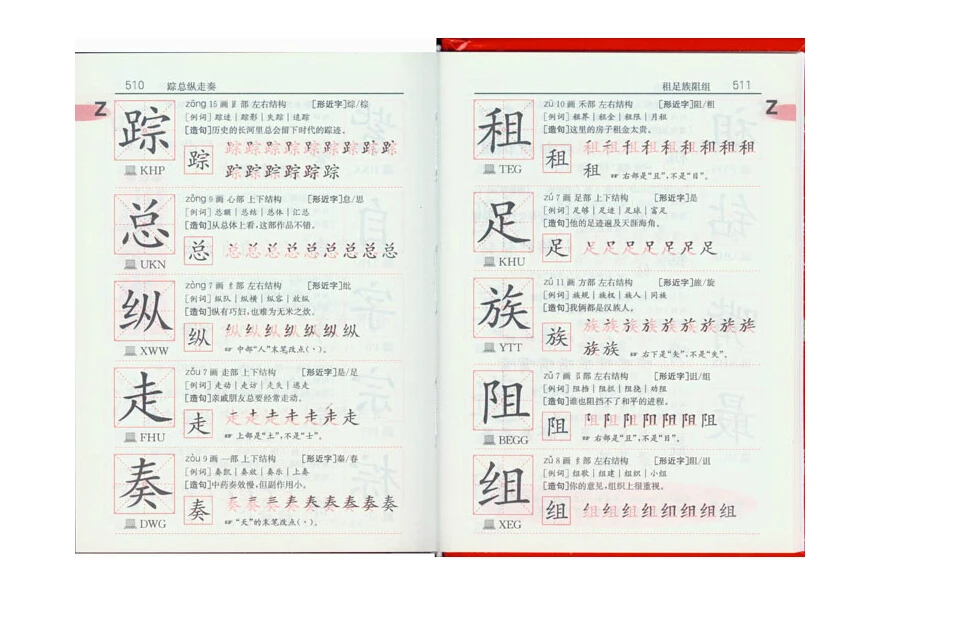 510 踪总纵走奏
Z
踪
KHP
zōng 15画 部 左右结构 [形近字]综/棕
[例词]踪迹|踪影|失踪|追踪
[造句]历史的长河里总会留下时代的踪迹。
踪
总
UKN
zǒng 9画 心部 上下结构 [形近字]怠/思
[例词]总额|总结|总体|汇总
[造句]从总体上看,这部作品不错。
总
纵
XWW
zòng 7画 纟部 左右结构 [形近字]纰
[例词]纵队|纵横|纵容|放纵
[造句]纵有巧妇,也难为无米之炊。
纵
中部“人”末笔改点(丶)。
走
FHU
zǒu 7画 走部 上下结构 [形近字]是/足
[例词]走动|走访|走失|逃走
[造句]亲戚朋友总要经常走动。
走
上部是“土”,不是“士”。
奏
DWG
zòu 9画 一部 上下结构 [形近字]秦/春
[例词]奏凯|奏效|奏乐|上奏
[造句]中药奏效慢,但副作用小。
奏
“天”的末笔改点(丶)。
租足族阻组 511
Z
租
TEG
zū 10画 禾部 左右结构 [形近字]阻/粗
[例词]租界|租金|租限|月租
[造句]这里的房子租金太贵。
租
右部是“且”,不是“目”。
足
KHU
zú 7画 足部 上下结构 [形近字]是
[例词]足够|足迹|足球|富足
[造句]他的足迹遍及天涯海角。
足
族
YTT
zú 11画 方部 左右结构 [形近字]旅/旋
[例词]族规|族权|族人|同族
[造句]我俩都是汉族人。
族
右下是“矢”,不是“失”。
阻
BEGG
zǔ 7画 阝部 左右结构 [形近字]诅/组
[例词]阻挡|阻拦|阻挠|劝阻
[造句]谁也阻挡不了和平的进程。
阻
右部是“且”,不是“目”。
组
XEG
zǔ 8画 纟部 左右结构 [形近字]阻/诅
[例词]组歌|组建|组织|小组
[造句]你的意见,组织上很重视。
组